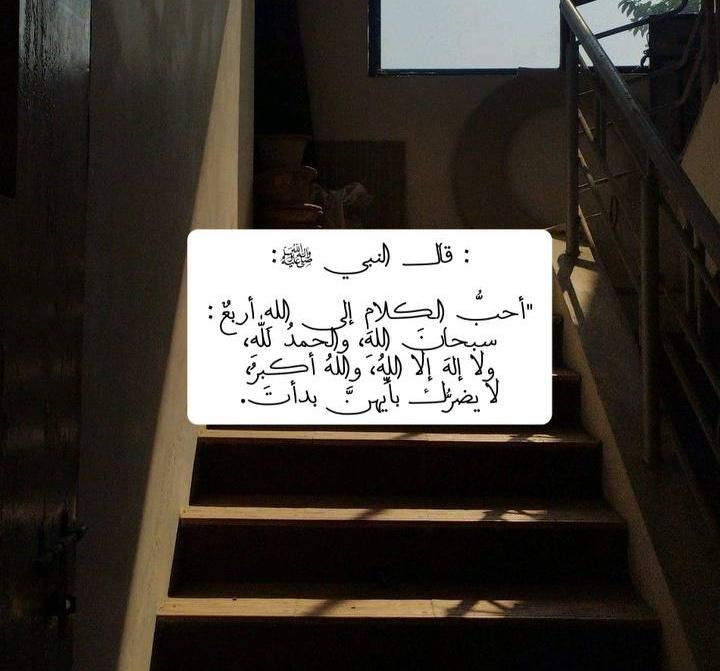 : قال النبي ﷺ :
"أحبُّ الكلام إلى الله أربعٌ :
سبحانَ اللهَ، والحمدُ للّه،
ولا إلهَ إلا اللهُ، واللهُ أكبرُ،
لا يضرُّك بأيِّهنَّ بدأتَ.